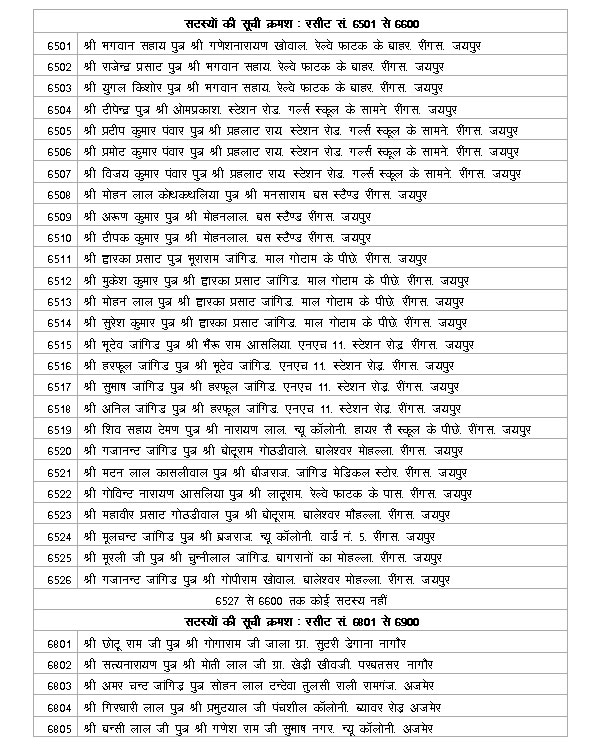 सदस्यों की सूची क्रमश : रसीट सं. 6501 से 6600
6501 श्री भगवान सहाय पुत्र श्री गणेशनारायण खोवाल. रेल्वे फाटक के बाहर. रींगस. जयपुर
6502 श्री राजेन्द्र प्रसाट पुत्र श्री भगवान सहाय. रेल्वे फाटक के बाहर. रींगस. जयपुर
6503 श्री युगल किशोर पुत्र श्री भगवान सहाय. रेल्वे फाटक के बाहर. रींगस. जयपुर
6504 श्री टीपेन्द्र पुत्र श्री ओमप्रकाश. स्टेशन रोड. गर्ल्स स्कूल के सामने. रींगस. जयपुर
6505 श्री प्रटीप कुमार पंवार पुत्र श्री प्रहलाट राय. स्टेशन रोड. गर्ल्स स्कूल के सामने. रींगस. जयपुर
6506 श्री प्रमोट कुमार पंवार पुत्र श्री प्रहलाट राय. स्टेशन रोड. गर्ल्स स्कूल के सामने. रींगस. जयपुर
6507 श्री विजय कुमार पंवार पुत्र श्री प्रहलाट राय. स्टेशन रोड. गर्ल्स स्कूल के सामने. रींगस. जयपुर
6508 श्री मोहन लाल कोथकथलिया पुत्र श्री मनसाराम. बस स्टैण्ड रींगस. जयपुर
6509 श्री अरूण कुमार पुत्र श्री मोहनलाल. बस स्टैण्ड रींगस. जयपुर
6510 श्री टीपक कुमार पुत्र श्री मोहनलाल. बस स्टैण्ड रींगस. जयपुर
6511 श्री द्वारका प्रसाट पुत्र भूराराम जांगिड. माल गोटाम के पीछे. रींगस. जयपुर
6512 श्री मुकेश कुमार पुत्र श्री द्वारका प्रसाट जांगिड. माल गोटाम के पीछे. रींगस. जयपुर
6513 श्री मोहन लाल पुत्र श्री द्वारका प्रसाट जांगिड. माल गोटाम के पीछे. रींगस. जयपुर
6514 श्री सुरेश कुमार पुत्र श्री द्वारका प्रसाट जांगिड. माल गोटाम के पीछे. रींगस. जयपुर
6515 श्री भूटेव जांगिड पुत्र श्री भैंरू राम आसलिया. एनएच 11. स्टेशन रोड़. रींगस. जयपुर
6516 श्री हरफूल जांगिड पुत्र श्री भूटेव जांगिड. एनएच 11. स्टेशन रोड़. रींगस. जयपुर
6517 श्री सुभाष जांगिड पुत्र श्री हरफूल जांगिड. एनएच 11. स्टेशन रोड़. रींगस. जयपुर
6518 श्री अनिल जांगिड पुत्र श्री हरफूल जांगिड. एनएच 11. स्टेशन रोड़. रींगस. जयपुर
6519 श्री शिव सहाय टेमण पुत्र श्री नारायण लाल. न्यू कॉलोनी. हायर सै स्कूल के पीछे. रींगस. जयपुर
6520 श्री गजानन्ट जांगिड पुत्र श्री बोटूराम गोठडीवाले. बालेश्वर मोहल्ला. रींगस. जयपुर
6521 श्री मटन लाल कासलीवाल पुत्र श्री बीजराज. जांगिड मेडिकल स्टोर. रींगस. जयपुर
6522 श्री गोविन्ट नारायण आसलिया पुत्र श्री लाटूराम. रेल्वे फाटक के पास. रींगस. जयपुर
6523 श्री महावीर प्रसाट गोठडीवाल पुत्र श्री बोटूराम. बालेश्वर मौहल्ला. रींगस. जयपुर
6524 श्री मूलचन्ट जांगिड पुत्र श्री ब्रजराज. न्यू कॉलोनी. वार्ड नं. 5. रींगस. जयपुर
6525 श्री मूरली जी पुत्र श्री चुन्नीलाल जांगिड. बागरानों का मोहल्ला. रींगस. जयपुर
6526 श्री गजानन्ट जांगिड पुत्र श्री गोपीराम खोवाल. बालेश्वर मोहल्ला. रींगस. जयपुर
6527 से 6600 तक कोई सटस्य नहीं
सटस्यों की सूची क्रमश : रसीट सं. 6801 से 6900
6801 श्री छोटू राम जी पुत्र श्री गोगाराम जी जाला ग्रा. सुटरी डेगाना नागौर
6802 श्री सत्यनारायण पुत्र श्री मोती लाल जी ग्रा. खेड़ी खीवजी. परबतसर. नागौर
6803 श्री अमर चन्ट जांगिड़ पुत्र सोहन लाल टन्टेवा तुलसी राली रामगंज. अजमेर
6804 श्री गिरधारी लाल पुत्र श्री प्रभुटयाल जी पंचशील कॉलोनी. ब्यावर रोड़ अजमेर
6805 श्री बन्सी लाल जी पुत्र श्री गणेश राम जी सुभाष नगर. न्यू कॉलोनी. अजमेर